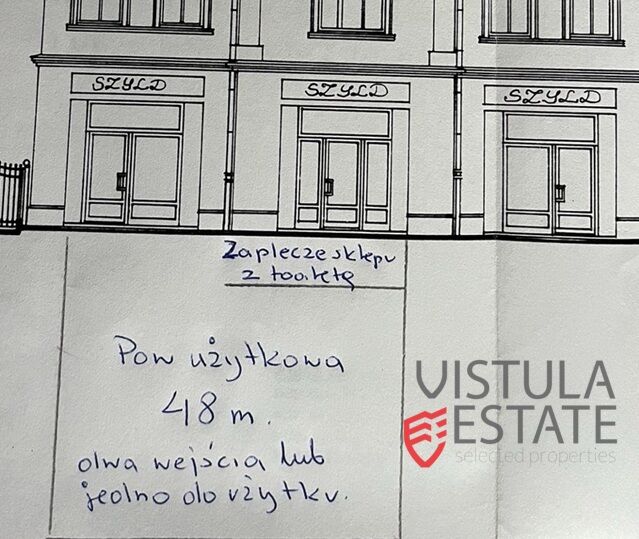 SZYLD SZYLD SZYLD
Zaplecze sklepu
z toaletą
Pow użytkowa
48 m.
dwa wejścia lub
jedno do użytku.
VISTULA
ESTATE
selected properties